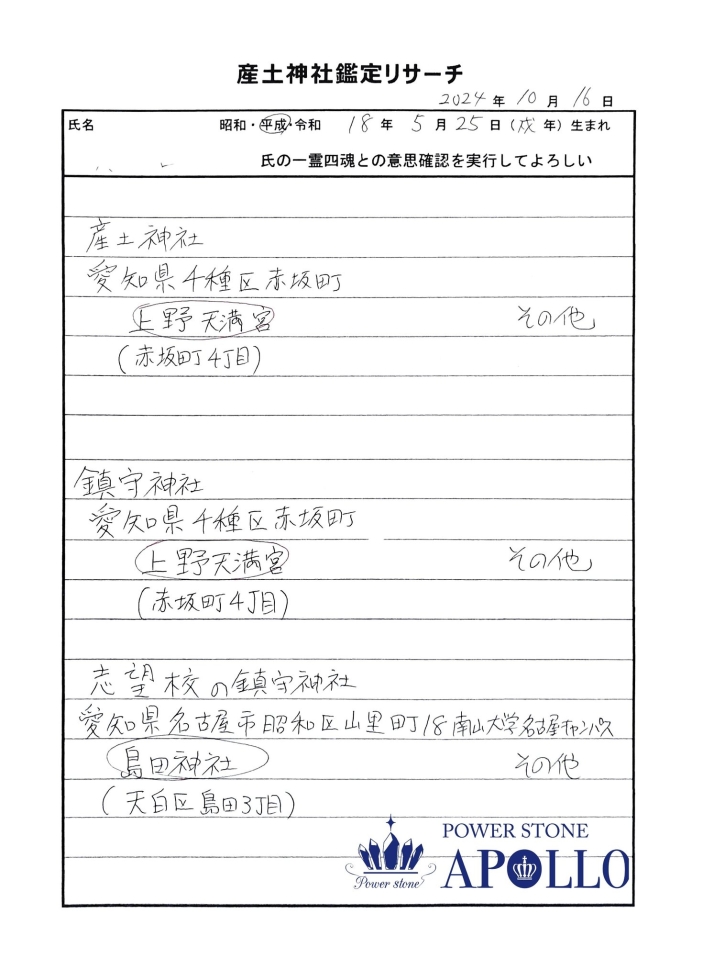 産土神社鑑定リサーチ
2024年10月16日
氏名 昭和・平成・令和 18年5月25日(戌年)生まれ
氏の一霊四魂との意思確認を実行してよろしい
産土神社
愛知県千種区赤坂町
上野天満宮 その他
(赤坂町4丁目)
鎮守神社
愛知県千種区赤坂町
上野天満宮 その他
(赤坂町4丁目)
志望校の鎮守神社
愛知県名古屋市昭和区山里町18南山大学名古屋キャンパス
島田神社 その他
(天白区島田3丁目)
POWER STONE
APOLLO
Power stone